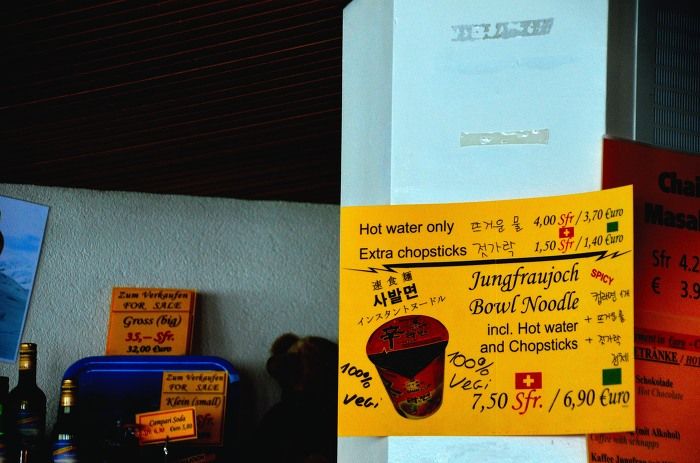 Hot water only 뜨거운 물 4,00 Sfr / 3,70 €uro
Extra chopsticks 젓가락 1,50 Sfr / 1,40 €uro
速食麵
사발면
インスタントヌードル
Jungfraujoch
Bowl Noodle
SPICY
incl. Hot water
and Chopsticks
컵라면 1개
+ 뜨거운물
+ 젓가락
辛
100%
VEGI
100%
VEGI
7,50 Sfr. / 6,90 €uro
Zum Verkaufen
FOR SALE
Gross (big)
35,– Sfr.
32,00 €uro
Zum Verkaufen
FOR SALE
Klein (small)
Sfr.
Campari Soda
Sfr 6,30 €uro 5,80
Chai
Masa
Sfr 4.2
€ 3.9
ETRÄNKE / HO
Schokolade
Hot Chocolate
(mit Alkohol)
Coffee with schnapps
Kaffee Jungfrau